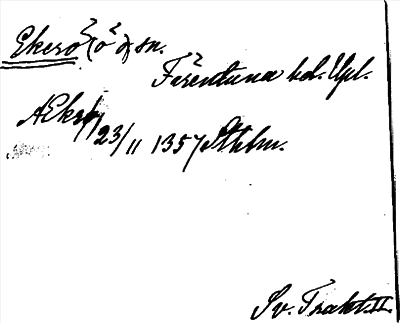 Ekerö (ö) sn.
Färentuna hd. Upl.
23/11 1357 Sthlm.
Sv. Trakt. II.